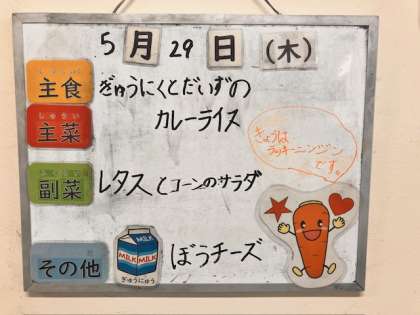 5月29日(木)
しゅしょく
主食
ぎゅうにくとだいずの
しゅさい
主菜
カレーライス
きょうは
ラッキーニンジン
です。
ふくさい
副菜
レタスとコーンのサラダ
その他
MILK
MILK MILK
ぎゅうにゅう
ぼうチーズ